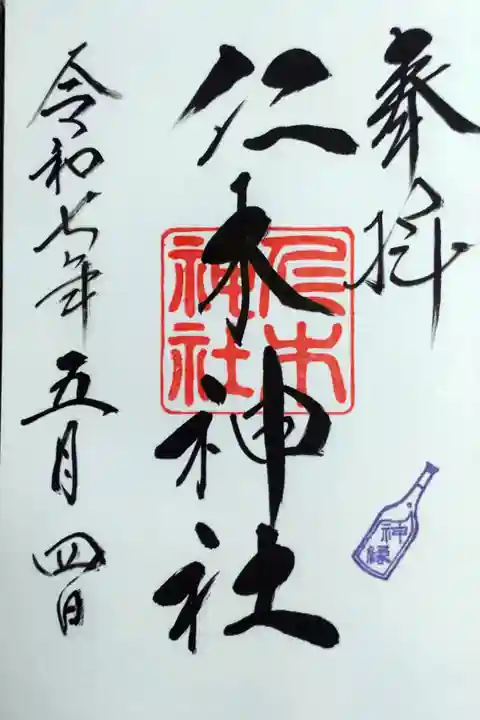 奉拝
仁木神社
仁木
神社
令和七年五月四日
神縁